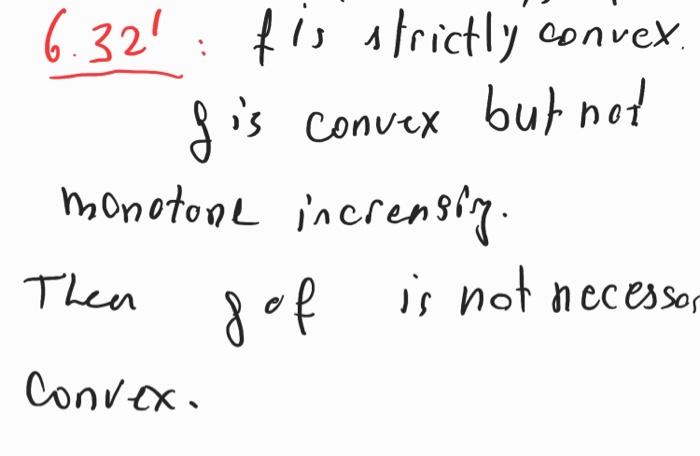 6.32' : f is strictly convex.
g is convex but not
monotone incrensig.
Then g∘f is not necessar
Convex.